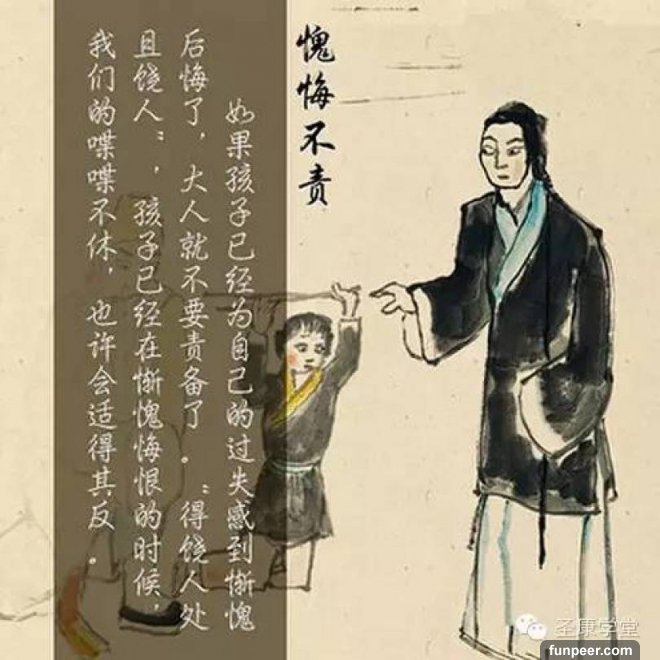 愧悔不责
如果孩子已经为自己的过失感到惭愧
后悔了，大人就不要责备了。“得饶人处
且饶人”，孩子已经在惭愧悔恨的时候，
我们的喋喋不休，也许会适得其反。
圣康学堂
funpeer.com